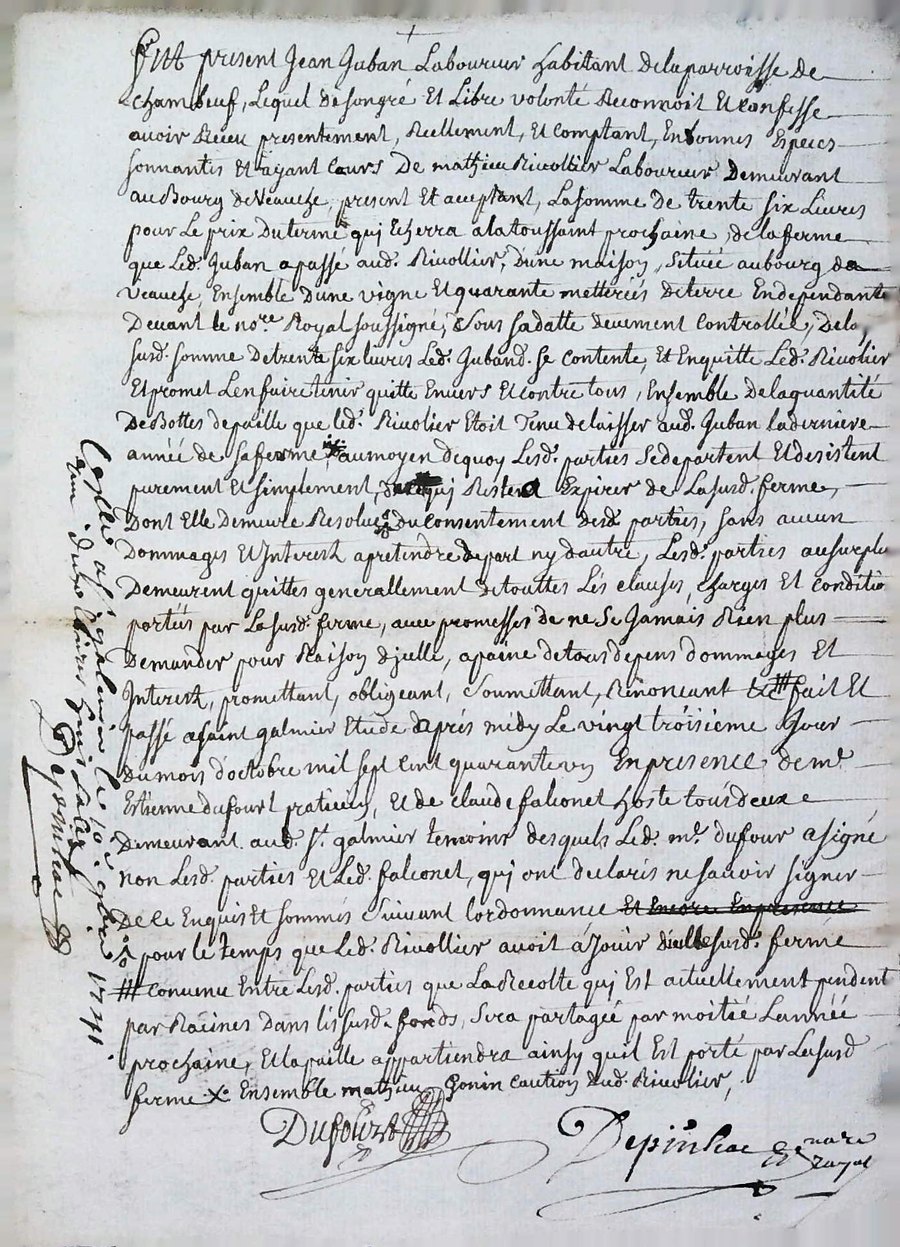 Fut present Jean Juban Laboureur habitant dela parroisse de
chambeuf, Lequel de son gré Et Libre volonté Reconnoit Et confesse
avoir Receu presentement, Reellement, Et comptant, En bonnes Especes
sonnantes Et ayant cours De mathieu Rivollier Laboureur Demeurant
au Bourg de Veauche, present Et acceptant, La somme de trente six Livres
pour Le prix du terme qui Echerra a la toussaint prochaine, de la ferme
que Led. Juban a passé aud. Rivollier, D'une maison, située au bourg de
Veauche, Ensemble D'une vigne Et quarante metterées de terre En dependante
Devant le nore Royal soussigné, Sous sa datte deuement Controllée, De la
susd. somme De trente six livres Led. Juban se contente, Et En quitte Led. Rivolier
Et promet L'en faire tenir quitte Envers Et contre tous, Ensemble De la quantité
De Bottes de paille que led. Rivolier Etoit Tenu de laisser aud. Juban la derniere
année de sa ferme, au moyen de quoy Lesd. parties se departent Et desistent
purement Et simplement, qui Reste a Expirer de La susd. ferme,
Dont Elle Demeure Resolue du consentement desd. parties, sans aucun
Dommages Et Interest a pretendre de part ny d'autre, Lesd. parties au surplus
Demeurent quittes generallement de touttes Les clauses, charges Et conditio
portées par La susd. ferme, avec promesses de ne Se Jamais Rien plus
Demander pour Raison d'jcelle, a paine de tous depens dommages Et
Interest, promettant, obligeant, Soumettant, Renonceant fait Et
passé a saint galmier Etude apres midy Le vingt troisieme Jour
du mois d'octobre mil sept cent quarante un En presence de mr.
Estienne dufourt praticien, Et de claude falconet hoste tous deux
Demeurant aud. St. galmier temoins desquels Led. mr. dufour a signé
non Lesd. parties Et Led. falconet, qui ont declarés ne savoir signer
De ce Enquis Et sommés suivant l'ordonnance Et Encore En presence
pour le temps que Led. Rivollier avoit a Jouir d'icelle susd. ferme
convenu Entre Lesd. parties que La Recolte qui Est actuellement pendent
par Racines Dans les susd. fonds, Sera partagée par moitié L'année
prochaine, Et la paille appartiendra ainsy qu'il Est porté par La susd
ferme X Ensemble mathieu Gonin caution dud. Rivolier,
Dufourt
Depinhac
nore
royal
a st galmier le 1741.
Depinhac